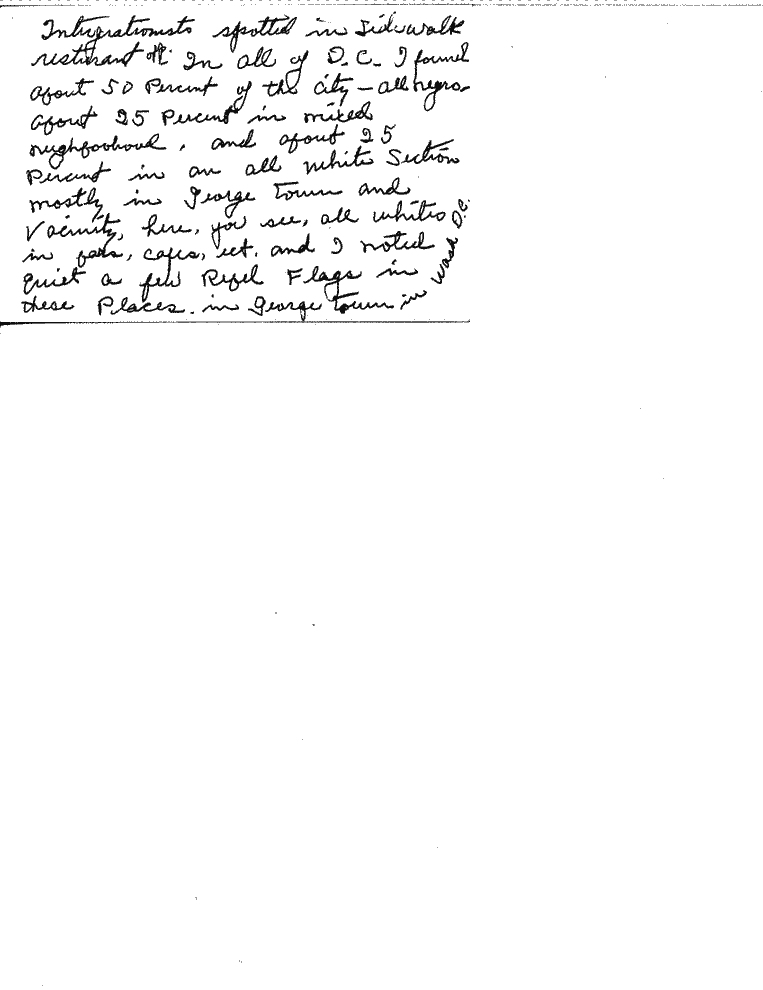 Intigrationists spotted in Sidewalk
restirant . In all of D.C. I found
about 50 Percent of the city - all negro
about 25 Percent in mixed
neighborhood, and about 25
Percent in an all white Section
mostly in George Town and
Vacinity, here, you see, all whites
in bars, cafes, ect. and I noted
quiet a few Rebel Flags in
these Places. in George Town in Wash D.C.